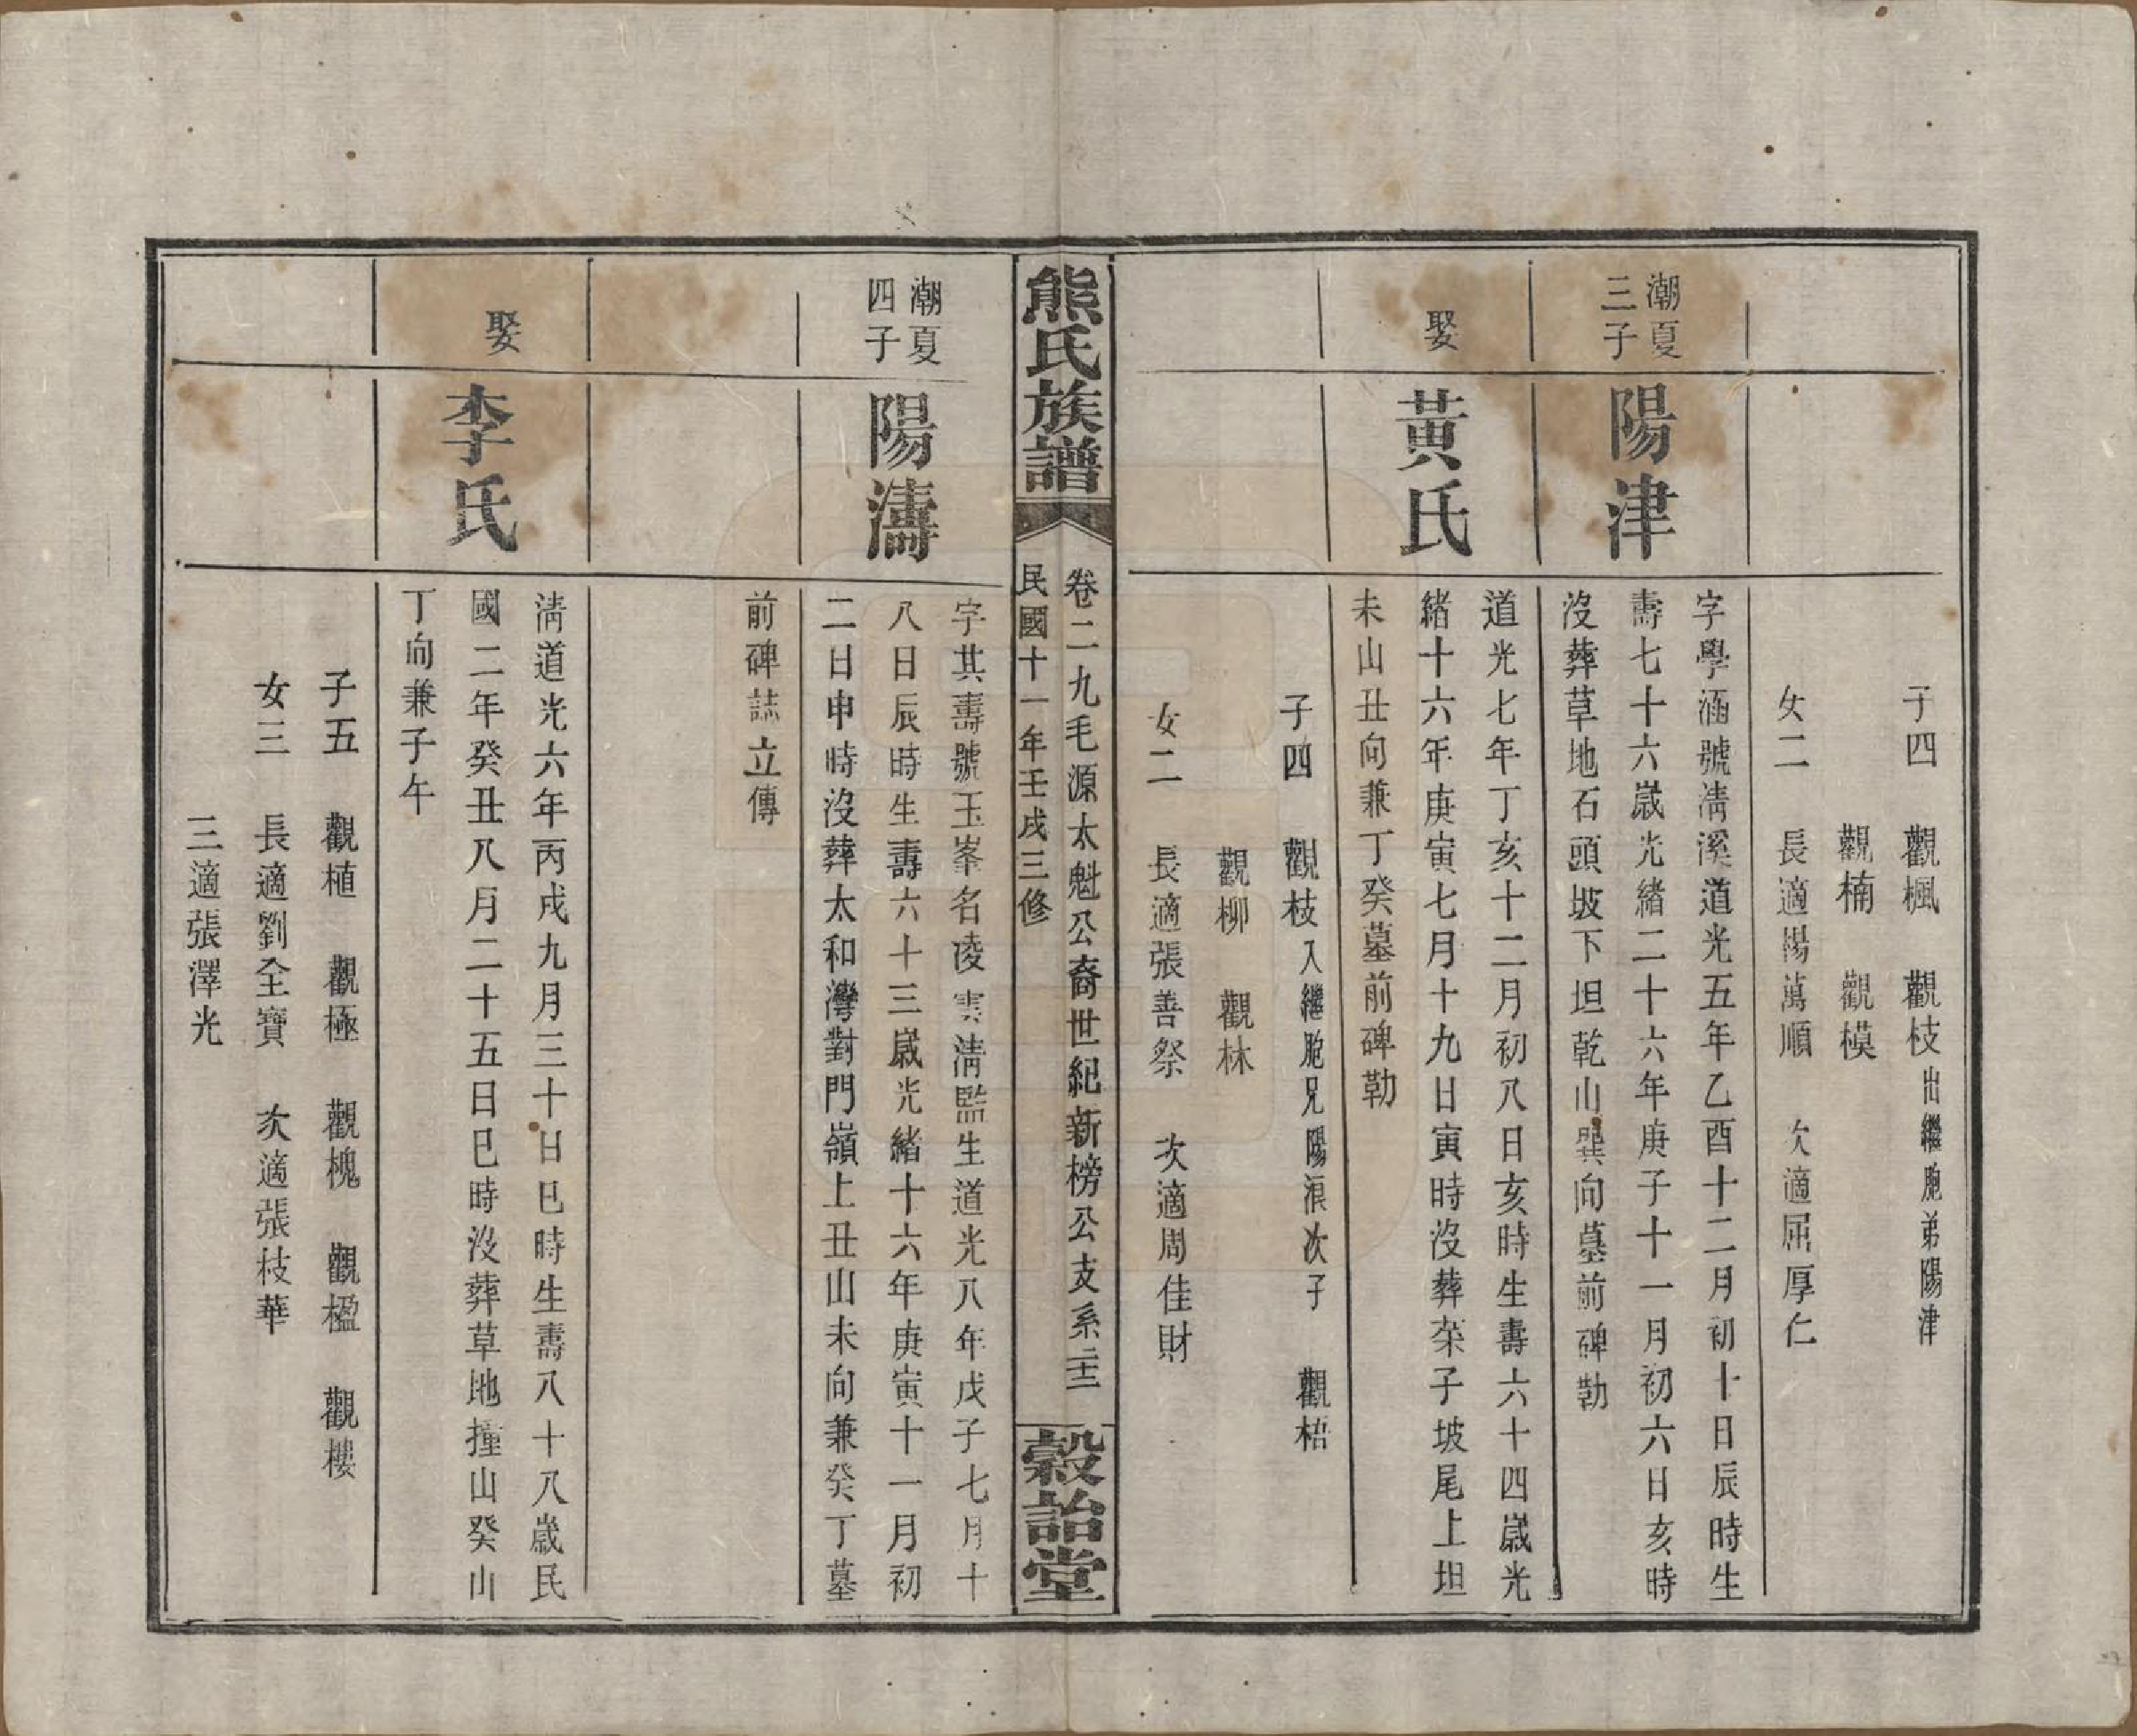 子四　觀楓　觀枝出繼胞弟陽津
觀楠　觀模
女二　長適楊萬順　次適屈厚仁
潮夏
三子
陽津
字學涵號清溪道光五年乙酉十二月初十日辰時生
壽七十六歲光緒二十六年庚子十一月初六日亥時
沒葬草地石頭坡下坦乾山巽向墓前碑勒
娶
黃氏
道光七年丁亥十二月初八日亥時生壽六十四歲光
緒十六年庚寅七月十九日寅時沒葬菜子坡尾上坦
未山丑向兼丁癸墓前碑勒
子四　觀枝入繼胞兄陽浪次子　觀梧
觀柳　觀林
女二　長適張善祭　次適周佳財
熊氏族譜
卷二九毛源太魁公裔世紀新榜公支系
民國十一年壬戌三修
穀詒堂
潮夏
四子
陽濤
字其壽號玉峯名凌雲清監生道光八年戊子七月十
八日辰時生壽六十三歲光緒十六年庚寅十一月初
二日申時沒葬太和灣對門嶺上丑山未向兼癸丁墓
前碑誌立傳
娶
李氏
清道光六年丙戌九月三十日巳時生壽八十八歲民
國二年癸丑八月二十五日巳時沒葬草地撞山癸山
丁向兼子午
子五　觀植　觀極　觀槐　觀楹　觀樓
女三　長適劉全寶　次適張枝華
三適張澤光